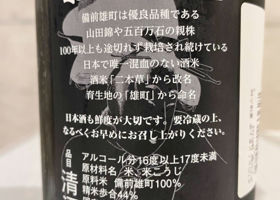 備前雄町は優良品種である
山田錦や五百万石の親株
100年以上も途切れず栽培され続けている
日本で唯一混血のない酒米
酒米「二本草」から改名
育生地の「雄町」から命名
日本酒も鮮度が大切です。要冷蔵の上、
なるべくお早めにお召し上がりください。
アルコール分16度以上17度未満
原材料名 米、米こうじ
原料米 備前雄町100%
精米歩合44%
品目 清酒